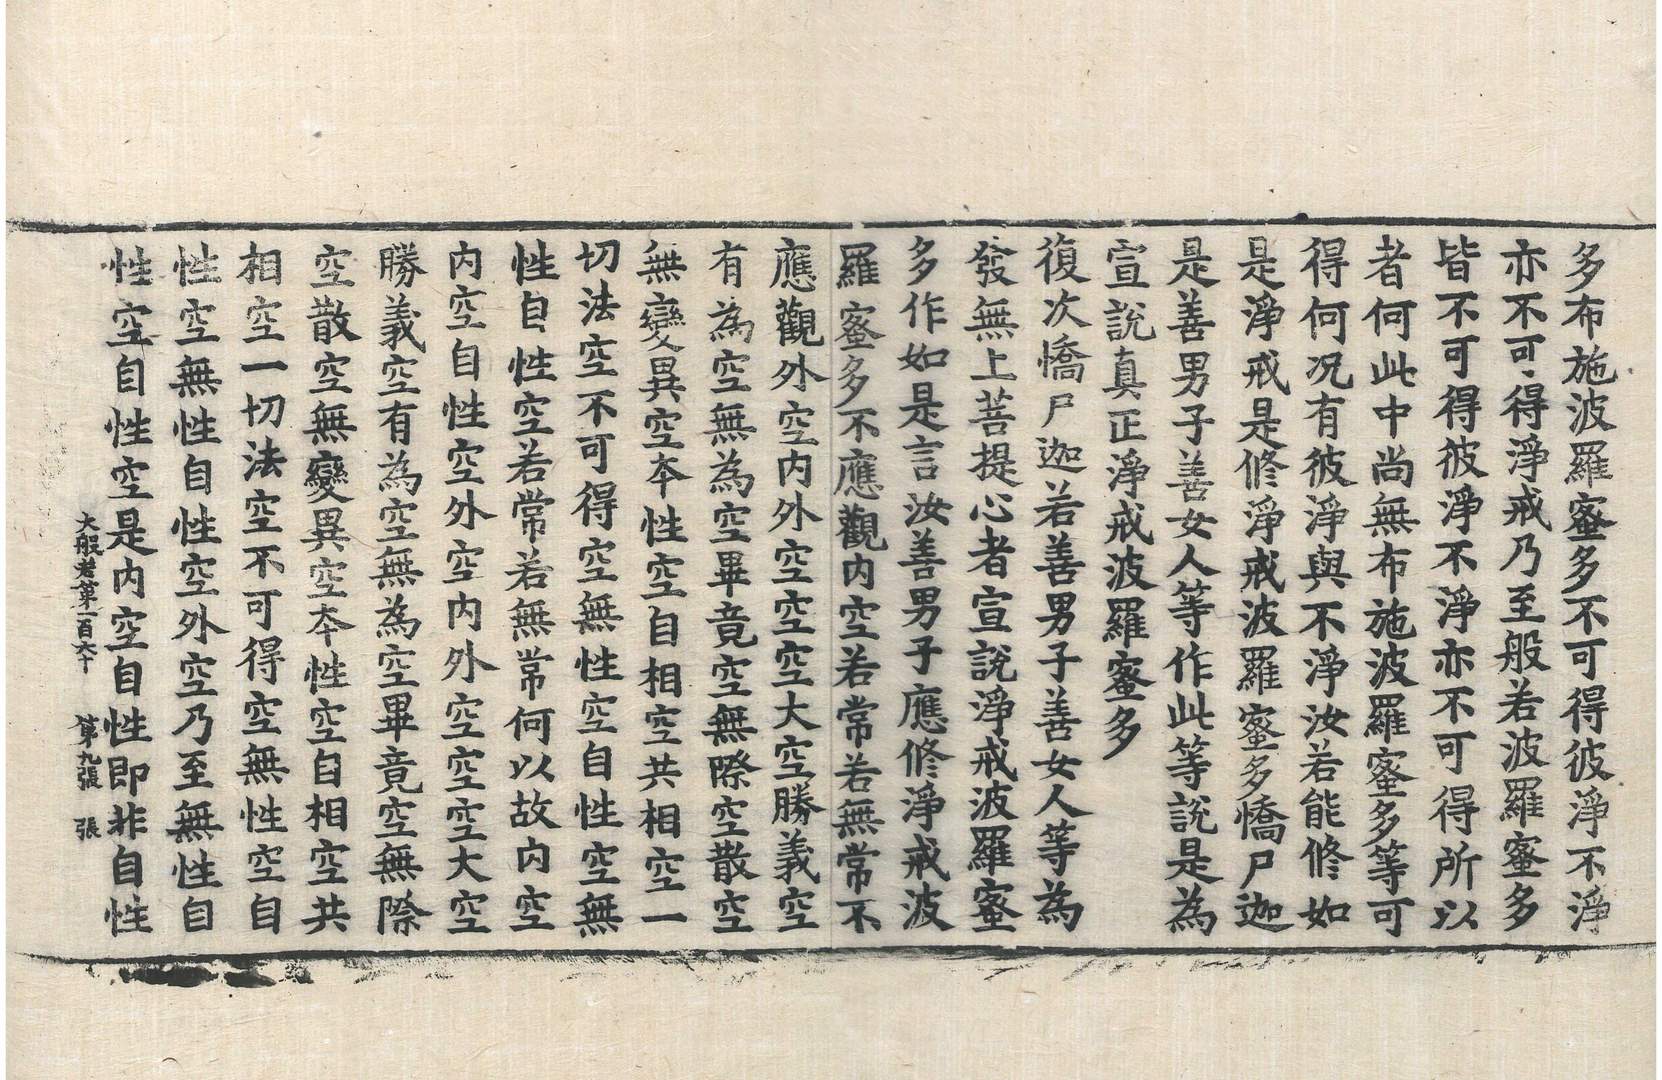 多布施波羅蜜多不可得彼淨不淨
亦不可得淨戒乃至般若波羅蜜多
皆不可得彼淨不淨亦不可得所以
者何此中尚無布施波羅蜜多等可
得何况有彼淨與不淨汝若能修如
是淨戒是修淨戒波羅蜜多憍尸迦
是善男子善女人等作此等說是為
宣說真正淨戒波羅蜜多
復次憍尸迦若善男子善女人等為
發無上菩提心者宣說淨戒波羅蜜
多作如是言汝善男子應修淨戒波
羅蜜多不應觀內空若常若無常不
應觀外空內外空空空大空勝義空
有為空無為空畢竟空無際空散空
無變異空本性空自相空共相空一
切法空不可得空無性空自性空無
性自性空若常若無常何以故內空
內空自性空外空內外空空空大空
勝義空有為空無為空畢竟空無際
空散空無變異空本性空自相空共
相空一切法空不可得空無性空自
性空無性自性空外空乃至無性自
性空自性空是內空自性即非自性
大般若第一百六十 第九張 張